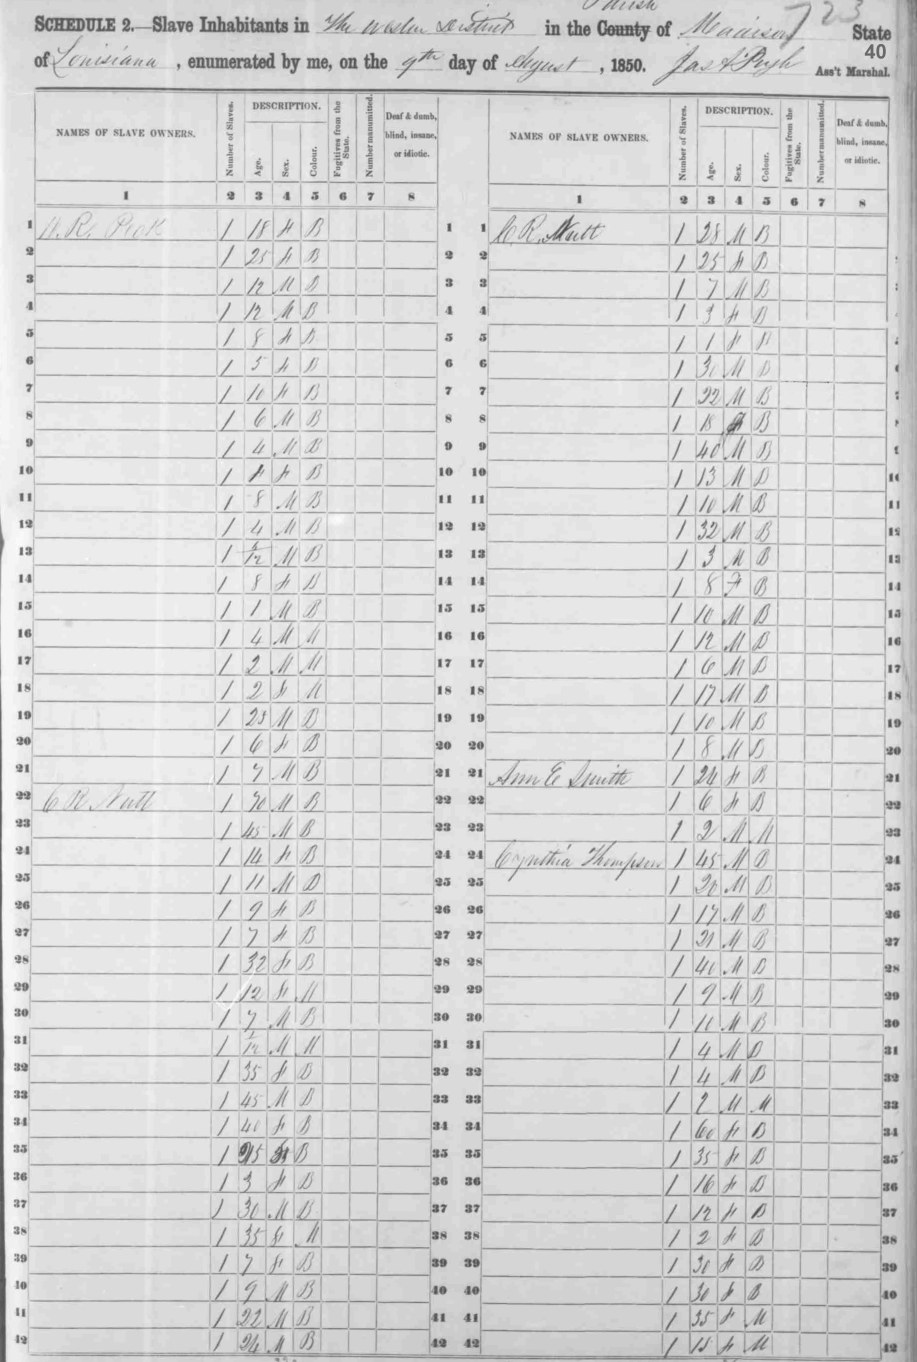 Parish 723
SCHEDULE 2.—Slave Inhabitants in The Western District in the County of Madison State
40
of Louisiana, enumerated by me, on the 9th day of August, 1850. Jas A Pugh Ass't Marshal.
NAMES OF SLAVE OWNERS. Number of Slaves. DESCRIPTION. Age. Sex. Colour. Fugitives from the State. Number manumitted. Deaf & dumb, blind, insane, or idiotic. NAMES OF SLAVE OWNERS. Number of Slaves. DESCRIPTION. Age. Sex. Colour. Fugitives from the State. Number manumitted. Deaf & dumb, blind, insane, or idiotic.
1 2 3 4 5 6 7 8 1 2 3 4 5 6 7 8
1 1 18 F B 1 1 C R Nutt 1 28 M B
2 1 25 F B 2 2 1 25 F B
3 1 12 M B 3 3 1 7 M B
4 1 12 M B 4 4 1 3 F B
5 1 8 F B 5 5 1 1 F B
6 1 5 F B 6 6 1 30 M B
7 1 10 F B 7 7 1 22 M B
8 1 6 M B 8 8 1 18 F B
9 1 4 M B 9 9 1 40 M B
10 1 F B 10 10 1 13 M B
11 1 8 M B 11 11 1 10 M B 11
12 1 4 M B 12 12 1 32 M B 12
13 1 M B 13 13 1 3 M B 13
14 1 8 F B 14 14 1 8 F B 14
15 1 1 M B 15 15 1 10 M B 15
16 1 4 M M 16 16 1 12 M B 16
17 1 2 M M 17 17 1 6 M B 17
18 1 2 F M 18 18 1 17 M B 18
19 1 23 M B 19 19 1 10 M B 19
20 1 6 F B 20 20 1 8 M B 20
21 1 7 M B 21 21 Ann E Smith 1 24 F B 21
22 C R Nutt 1 70 M B 22 22 1 6 F B 22
23 1 45 M B 23 23 1 2 M M 23
24 1 14 F B 24 24 Cynthia Thompson 1 45 M B 24
25 1 11 M B 25 25 1 20 M B 25
26 1 9 F B 26 26 1 17 M B 26
27 1 7 F B 27 27 1 M B 27
28 1 32 F B 28 28 1 40 M B 28
29 1 12 F M 29 29 1 9 M B 29
30 1 7 M B 30 30 1 M B 30
31 1 M M 31 31 1 4 M B 31
32 1 35 F B 32 32 1 4 M B 32
33 1 45 M B 33 33 1 2 M M 33
34 1 40 F B 34 34 1 60 F B 34
35 1 B 35 35 1 35 F B 35
36 1 3 F B 36 36 1 16 F B 36
37 1 30 M B 37 37 1 12 F B 37
38 1 35 F M 38 38 1 2 F B 38
39 1 7 F B 39 39 1 30 F B 39
40 1 9 M B 40 40 1 30 F B 40
41 1 22 M B 41 41 1 35 F M 41
42 1 24 M B 42 42 1 15 F M 42